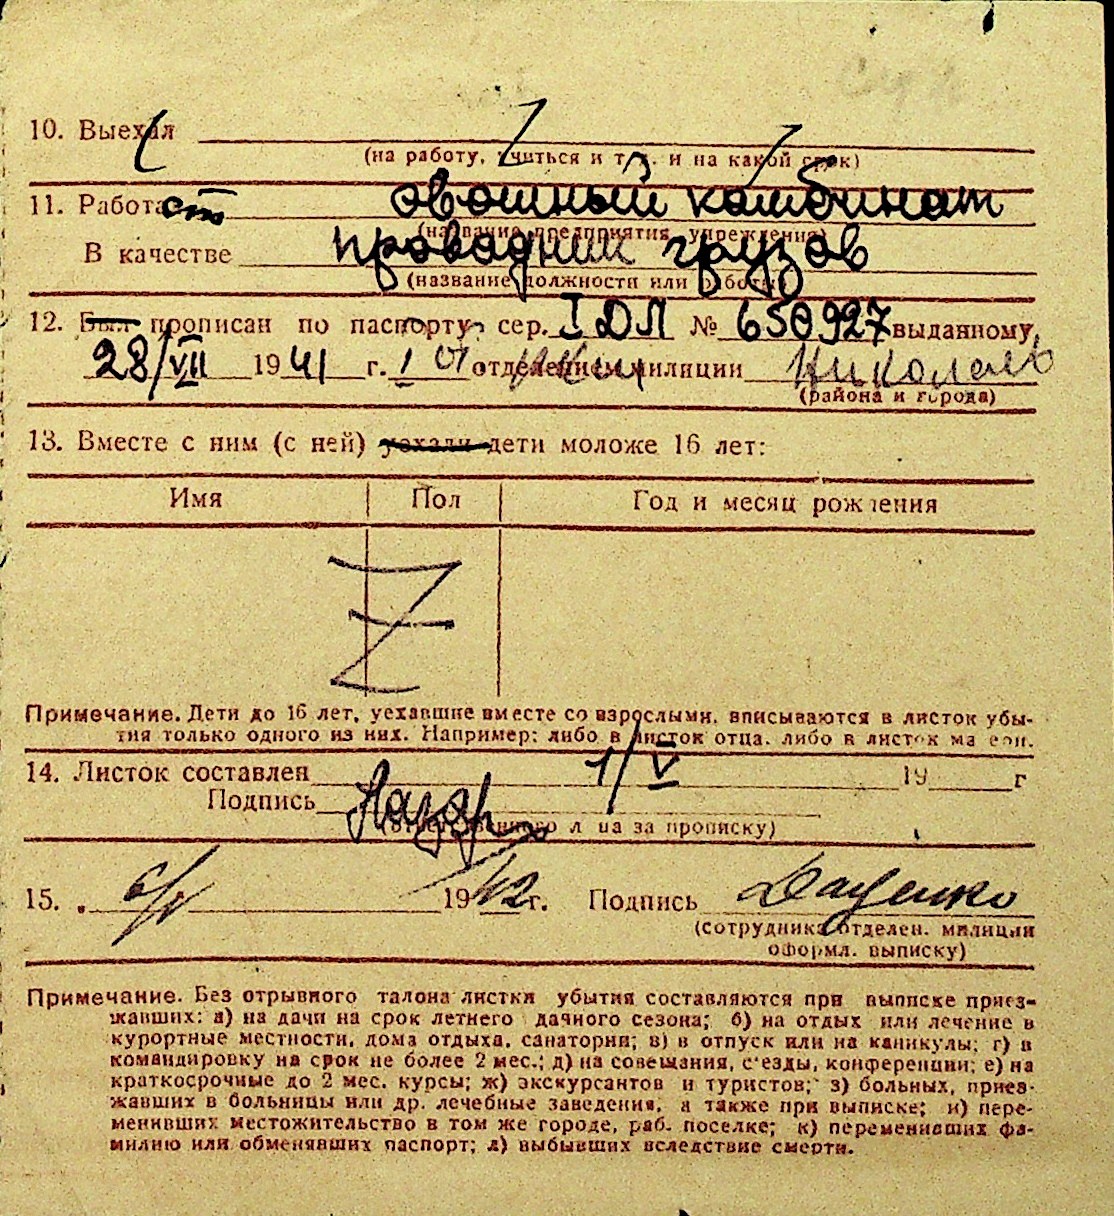 10. Выехал
(на работу, учиться и т. д. и на какой срок)
11. Работает овощный комбинат
(название предприятия, учреждения)
В качестве проводник грузов
(название должности или работы)
12. Был прописан по паспорту сер. I ДЛ № 650927 выданному,
28/VII 1941 г. I отделением милиции Николаев
(района и города)
13. Вместе с ним (с ней) уехали дети моложе 16 лет:
Имя Пол Год и месяц рождения
Z
Примечание. Дети до 16 лет, уехавшие вместе со взрослыми, вписываются в листок убы-
тия только одного из них. Например: либо в листок отца, либо в листок матери.
14. Листок составлен 1/V 19 г
Подпись
(ответственного лица за прописку)
15. „ 6/V 1942 г. Подпись Даценко
(сотрудника отделен. милиции
оформл. выписку)
Примечание. Без отрывного талона листки убытия составляются при выписке приез-
жавших: а) на дачи на срок летнего дачного сезона; б) на отдых или лечение в
курортные местности, дома отдыха, санатории; в) в отпуск или на каникулы; г) в
командировку на срок не более 2 мес.; д) на совещания, с'езды, конференции; е) на
краткосрочные до 2 мес. курсы; ж) экскурсантов и туристов; з) больных, приез-
жавших в больницы или др. лечебные заведения, а также при выписке; и) пере-
менивших местожительство в том же городе, раб. поселке; к) переменивших фа-
милию или обменявших паспорт; л) выбывших вследствие смерти.